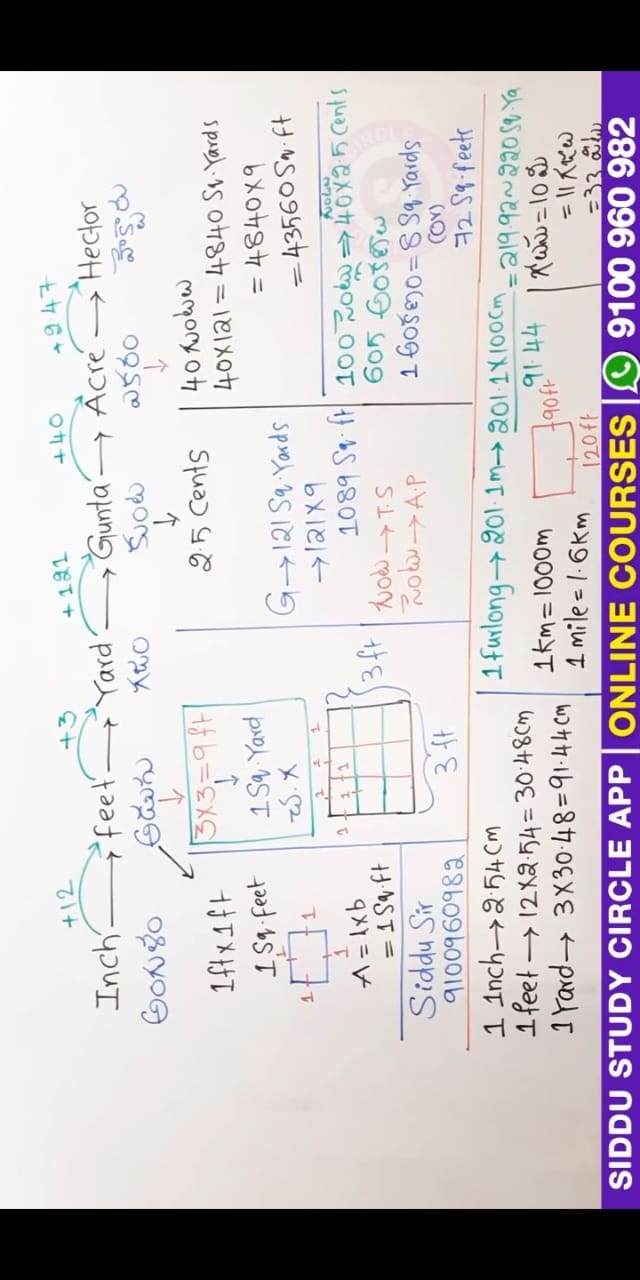 +12 +3 +121 +40 +2.47
Inch → feet → Yard → Gunta → Acre → Hector
అంగుళం అడుగు గజం కుంట ఎకరం హెక్టారు
1ft x 1ft
1 Sq.feet
1 1
1 1
A = l x b
= 1 Sq.ft
Siddu Sir
9100960982
3 x 3 = 9 ft
1 Sq.Yard
చ.గ
3 ft
3 ft
2.5 Cents
G → 121 Sq.Yards
→ 121 x 9
1089 Sq.ft
గుంట → T.S
సెంటు → A.P
40 గుంటలు
40 x 121 = 4840 Sq.Yards
= 4840 x 9
= 43560 Sq.ft
100 సెంట్లు ⇒ 40 x 2.5 Cents
605 అంకణాలు
1 అంకణం = 8 Sq.Yards
(or)
72 Sq.feets
1 Inch → 2.54 Cm
1 feet → 12 x 2.54 = 30.48 Cm
1 Yard → 3 x 30.48 = 91.44 Cm
1 Furlong → 201.1m → 201.1 x 100Cm = 219.92 ~ 220 Sq.Ya
91.44
1 Km = 1000m
1 mile = 1.6 Km
90ft
120ft
= 10 మీ
= 11 గజాలు
= 33
SIDDU STUDY CIRCLE APP | ONLINE COURSES | 9100 960 982